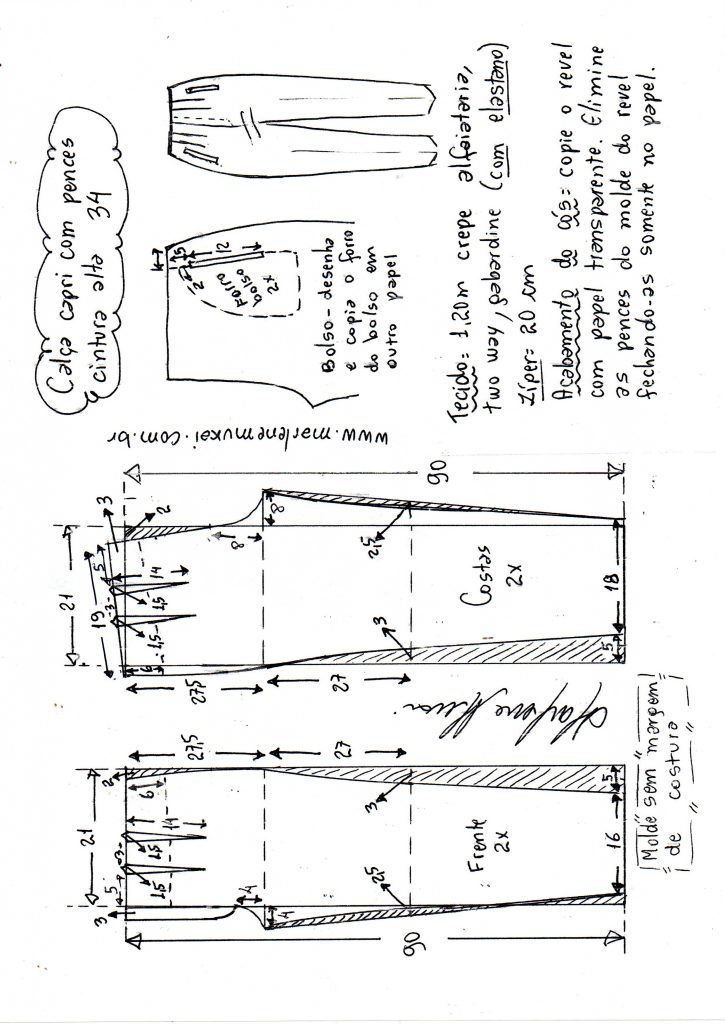 Calça capri com pences
cintura alta 34
www.marlenemukai.com.br
1,5
12
2
Forro
bolso
2x
Bolso - desenha
e copia o forro
do bolso em
outro papel
Tecido = 1,20m crepe alfaiataria,
two way, gabardine (com elastano)
zíper = 20 cm
Acabamento do cós = copie o revel
com papel transparente. Elimine
as pences do molde do revel
fechando-as somente no papel.
90
3
2
21
19
5
14
3
1,5
1,5
6
8
8
27,5
27
2,5
3
Costas
2x
18
5
27,5
27
2
6
21
14
3
1,5
1,5
5
3
4
4
2,5
3
Frente
2x
16
5
90
Molde sem margem
de costura